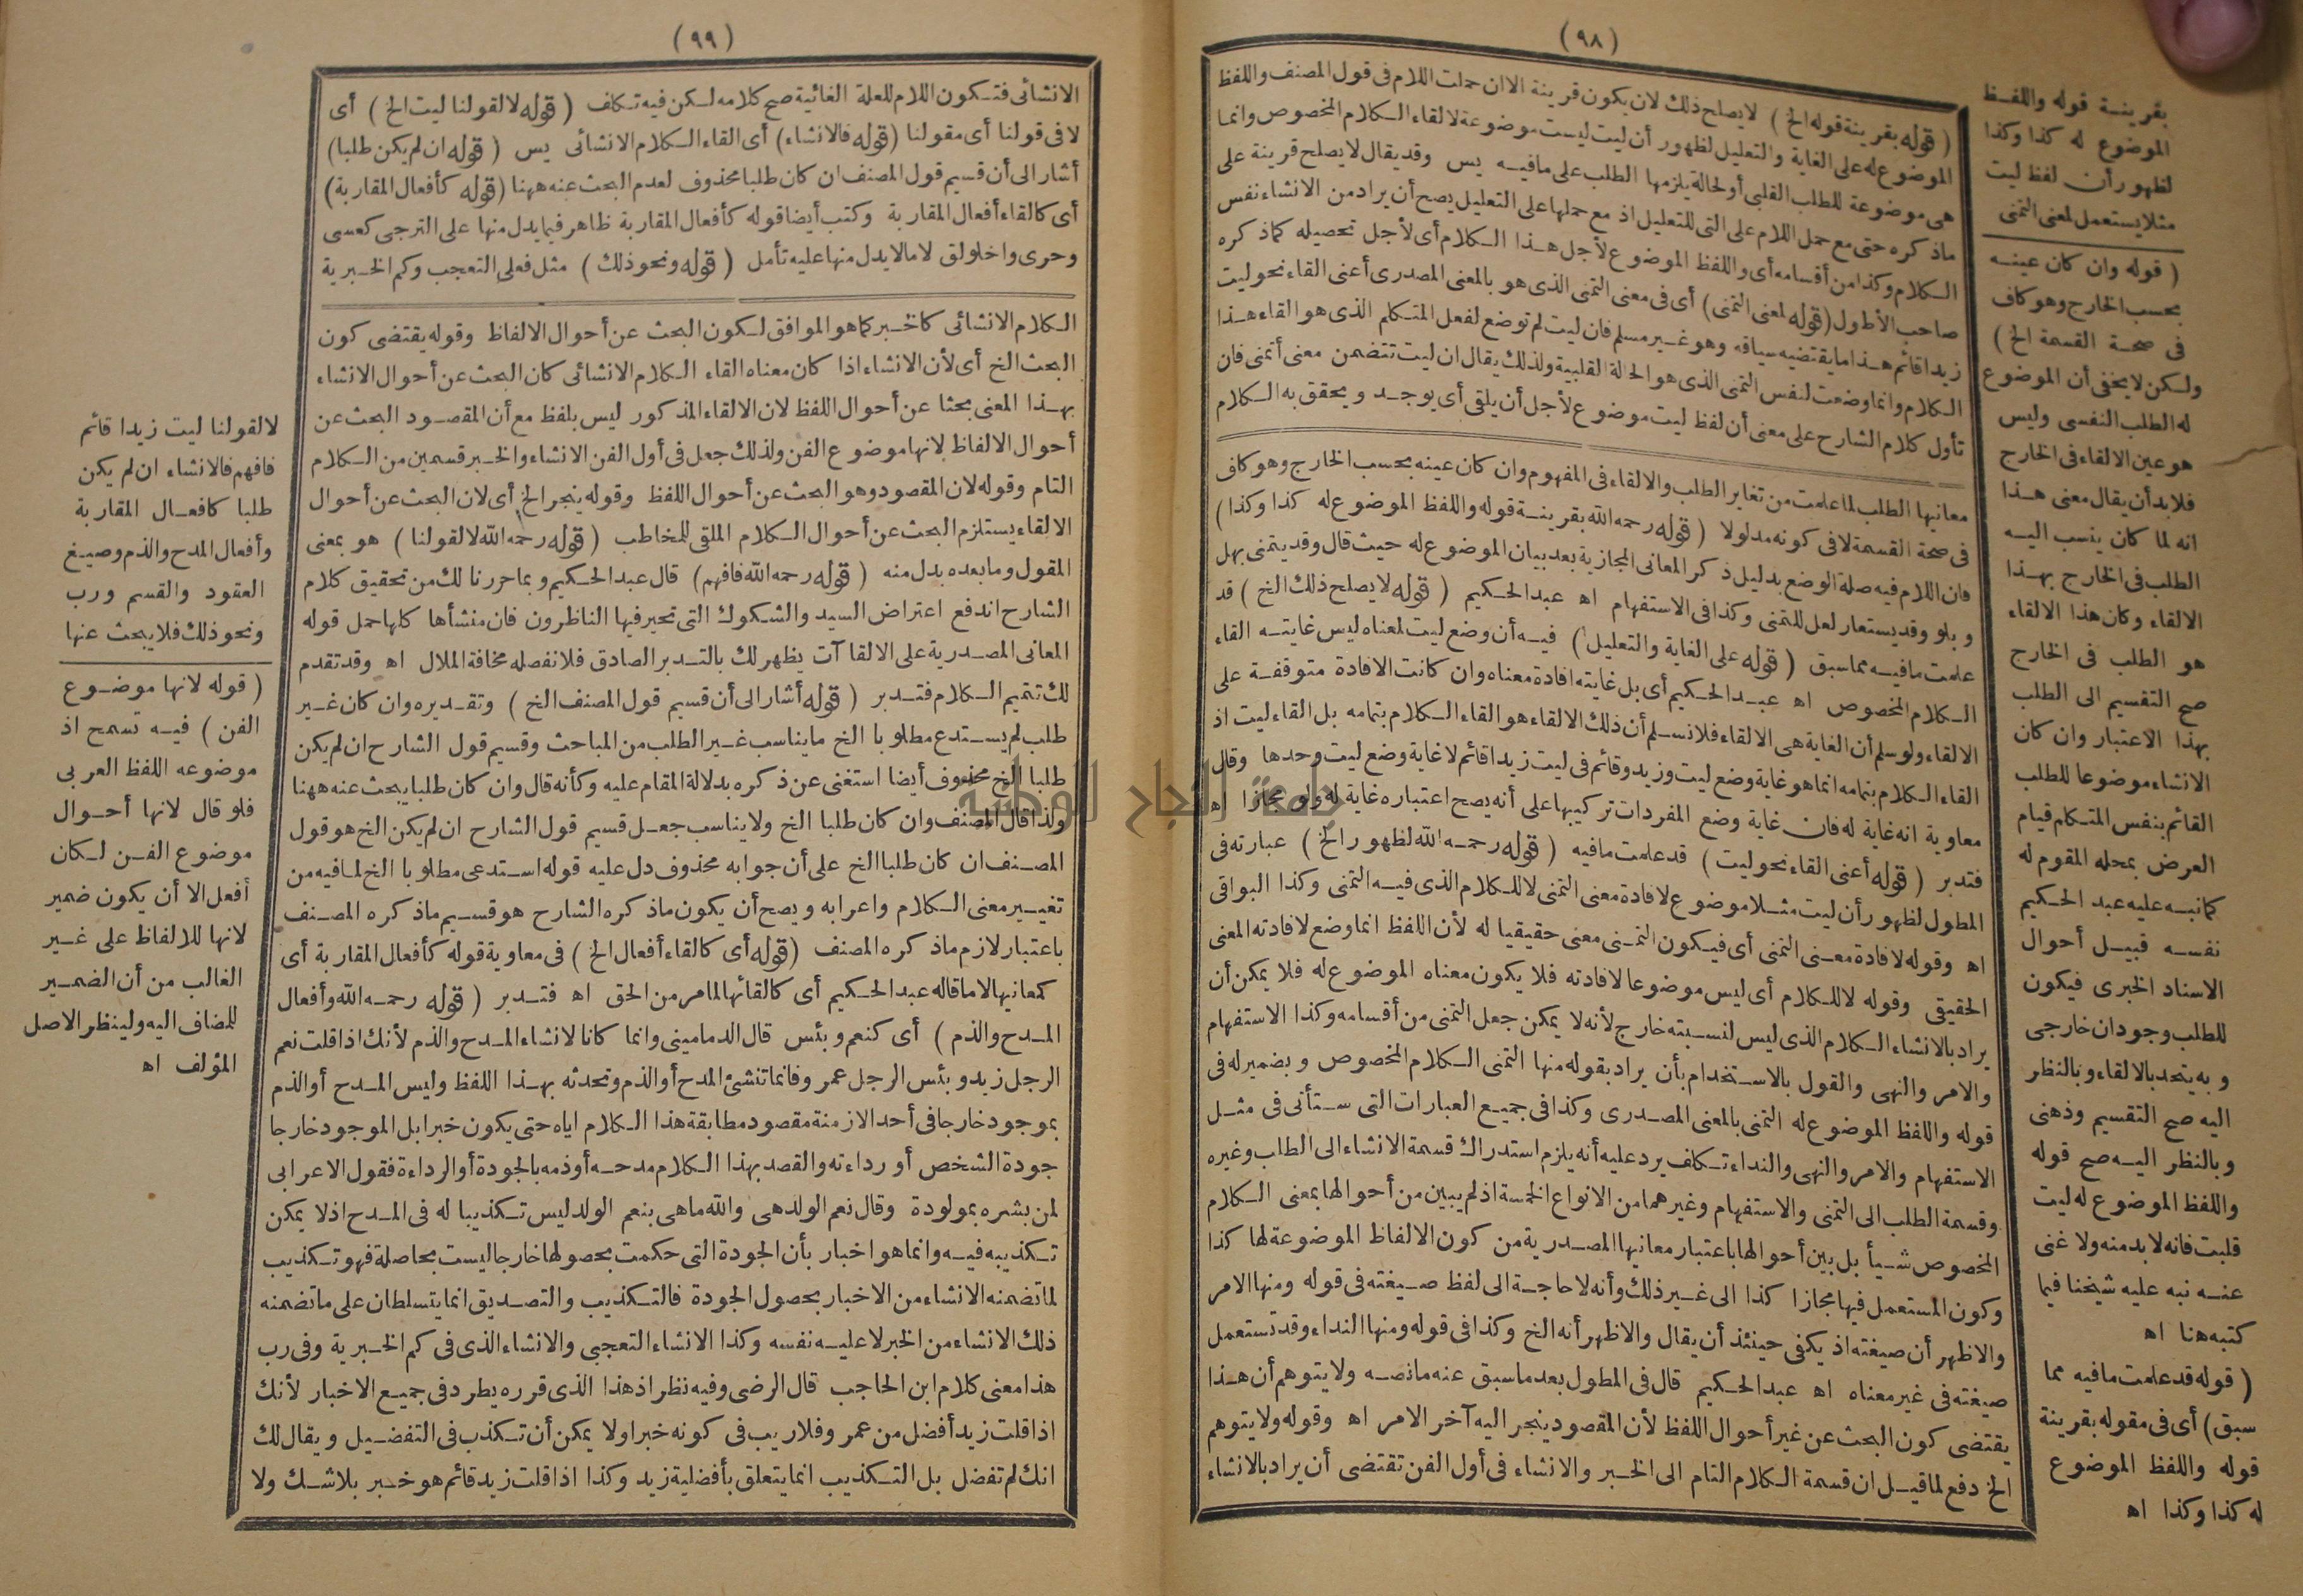 (٩٨)
(قوله بقرينة قوله الخ) لا يصلح ذلك لان يكون قرينة الا ان حملت اللام فى قول المصنف واللفظ
الموضوع له على الغاية والتعليل لظهور أن ليت ليست موضوعة لالقاء الكلام المخصوص وانما
هى موضوعة للطلب القلبى أو لحالة يلزمها الطلب على ما فيه يس وقد يقال لا يصلح قرينة على
ما ذكره حتى مع حمل اللام على التى للتعليل اذ مع حملها على التعليل يصح أن يراد من الانشاء نفس
الكلام وكذا من أقسامه أى واللفظ الموضوع لأجل هذا الكلام أى لأجل تحصيله كما ذكره
صاحب الأطول (قوله لمعنى التمنى) أى فى معنى التمنى الذى هو بالمعنى المصدرى أعنى القاء نحو ليت
زيدا قائم هذا ما يقتضيه سياقه وهو غير مسلم فان ليت لم توضع لفعل المتكلم الذى هو القاء هذا
الكلام وانما وضعت لنفس التمنى الذى هو الحالة القلبية ولذلك يقال ان ليت تتضمن معنى أتمنى فان
تأول كلام الشارح على معنى أن لفظ ليت موضوع لأجل أن يلقى أى يوجد ويحقق به الكلام
معانيها الطلب لما علمت من تغاير الطلب والالقاء فى المفهوم وان كان عينه بحسب الخارج وهو كاف
فى صحة القسمة لا فى كونه مدلولا (قوله رحمه الله بقرينة قوله واللفظ الموضوع له كذا وكذا)
فان اللام فيه صلة الوضع بدليل ذكر المعانى المجازية بعد بيان الموضوع له حيث قال وقد يتمنى بهل
وبلو وقد يستعار لعل للتمنى وكذا فى الاستفهام اه عبد الحكيم (قوله لا يصلح ذلك الخ) قد
علمت ما فيه مما سبق (قوله على الغاية والتعليل) فيه أن وضع ليت لمعناه ليس غايته القاء
الكلام المخصوص اه عبد الحكيم أى بل غايته افادة معناه وان كانت الافادة متوقفة على
الالقاء ولو سلم أن الغاية هى الالقاء فلا نسلم أن ذلك الالقاء هو القاء الكلام بتمامه بل القاء ليت اذ
القاء الكلام بتمامه انما هو غاية وضع ليت وزيد وقائم فى ليت زيدا قائم لا غاية وضع ليت وحدها وقال
معاوية انه غاية له فان غاية وضع المفردات تركيبها على أنه يصح اعتباره غاية له ولو مجازا اه
فتدبر (قوله أعنى القاء نحو ليت) قد علمت ما فيه (قوله رحمه الله لظهور الخ) عبارته فى
المطول لظهور أن ليت مثلا موضوع لافادة معنى التمنى لا للكلام الذى فيه التمنى وكذا البواقى
اه وقوله لافادة معنى التمنى أى فيكون التمنى معنى حقيقيا له لأن اللفظ انما وضع لافادته المعنى
الحقيقى وقوله لا للكلام أى ليس موضوعا لافادته فلا يكون معناه الموضوع له فلا يمكن أن
يراد بالانشاء الكلام الذى ليس لنسبته خارج لأنه لا يمكن جعل التمنى من أقسامه وكذا الاستفهام
والامر والنهى والقول بالاستخدام بأن يراد بقوله منها التمنى الكلام المخصوص وبضمير له فى
قوله واللفظ الموضوع له التمنى بالمعنى المصدرى وكذا فى جميع العبارات التى ستأتى فى مثل
الاستفهام والامر والنهى والنداء تكلف يرد عليه أنه يلزم استدراك قسمة الانشاء الى الطلب وغيره
وقسمة الطلب الى التمنى والاستفهام وغيرهما من الانواع الخمسة اذ لم يبين من أحوالها بمعنى الكلام
المخصوص شيأ بل بين أحوالها باعتبار معانيها المصدرية من كون الالفاظ الموضوعة لها كذا
وكون المستعمل فيها مجازا كذا الى غير ذلك وأنه لا حاجة الى لفظ صيغته فى قوله ومنها الامر
والاظهر أن صيغته اذ يكفى حينئذ أن يقال والاظهر أنه الخ وكذا فى قوله ومنها النداء وقد تستعمل
صيغته فى غير معناه اه عبد الحكيم قال فى المطول بعد ما سبق عنه ما نصه ولا يتوهم أن هذا
يقتضى كون البحث عن غير أحوال اللفظ لأن المقصود ينجر اليه آخر الامر اه وقوله ولا يتوهم
الخ دفع لما قيل ان قسمة الكلام التام الى الخبر والانشاء فى أول الفن تقتضى أن يراد بالانشاء
بقرينة قوله واللفظ
الموضوع له كذا وكذا
لظهور أن لفظ ليت
مثلا يستعمل لمعنى التمنى
(قوله وان كان عينه
بحسب الخارج وهو كاف
فى صحة القسمة الخ)
ولكن لا يخفى أن الموضوع
له الطلب النفسى وليس
هو عين الالقاء فى الخارج
فلا بد أن يقال معنى هذا
انه لما كان ينسب اليه
الطلب فى الخارج بهذا
الالقاء وكان هذا الالقاء
هو الطلب فى الخارج
صح التقسيم الى الطلب
بهذا الاعتبار وان كان
الانشاء موضوعا للطلب
القائم بنفس المتكلم قيام
العرض بمحله المقوم له
كما نبه عليه عبد الحكيم
نفسه قبيل أحوال
الاسناد الخبرى فيكون
للطلب وجودان خارجى
وبه يتحد بالالقاء وبالنظر
اليه صح التقسيم وذهنى
وبالنظر اليه صح قوله
واللفظ الموضوع له ليت
قلبت فانه لا بد منه ولا غنى
عنه نبه عليه شيخنا فيما
كتبه هنا اه
(قوله قد علمت ما فيه مما
سبق) أى فى مقوله بقرينة
قوله واللفظ الموضوع
له كذا وكذا اه
(٩٩)
الانشائى فتكون اللام للعلة الغائية صح كلامه لكن فيه تكلف (قوله لا لقولنا ليت الخ) أى
لا فى قولنا أى مقولنا (قوله فالانشاء) أى القاء الكلام الانشائى يس (قوله ان لم يكن طلبا)
أشار الى أن قسيم قول المصنف ان كان طلبا محذوف لعدم البحث عنه ههنا (قوله كأفعال المقاربة)
أى كالقاء أفعال المقاربة وكتب أيضا قوله كأفعال المقاربة ظاهر فيما يدل منها على الترجى كعسى
وحرى واخلولق لا ما لا يدل منها عليه تأمل (قوله ونحو ذلك) مثل فعلى التعجب وكم الخبرية
الكلام الانشائى كالخبر كما هو الموافق لكون البحث عن أحوال الالفاظ وقوله يقتضى كون
البحث الخ أى لأن الانشاء اذا كان معناه القاء الكلام الانشائى كان البحث عن أحوال الانشاء
بهذا المعنى بحثا عن أحوال اللفظ لان الالقاء المذكور ليس بلفظ مع أن المقصود البحث عن
أحوال الالفاظ لانها موضوع الفن ولذلك جعل فى أول الفن الانشاء والخبر قسمين من الكلام
التام وقوله لان المقصود وهو البحث عن أحوال اللفظ وقوله ينجر الخ أى لان البحث عن أحوال
الالقاء يستلزم البحث عن أحوال الكلام الملقى للمخاطب (قوله رحمه الله لا لقولنا) هو بمعنى
المقول وما بعده بدل منه (قوله رحمه الله فافهم) قال عبد الحكيم وبما حررنا لك من تحقيق كلام
الشارح اندفع اعتراض السيد والشكوك التى تحير فيها الناظرون فان منشأها كلها حمل قوله
المعانى المصدرية على الالقاآت يظهر لك بالتدبر الصادق فلا نفصله مخافة الملال اه وقد تقدم
لك تتميم الكلام فتدبر (قوله أشار الى أن قسيم قول المصنف الخ) وتقديره وان كان غير
طلب لم يستدع مطلوبا الخ ما يناسب غير الطلب من المباحث وقسيم قول الشارح ان لم يكن
طلبا الخ محذوف أيضا استغنى عن ذكره بدلالة المقام عليه وكأنه قال وان كان طلبا يبحث عنه ههنا
ولذا قال المصنف وان كان طلبا الخ ولا يناسب جعل قسيم قول الشارح ان لم يكن الخ هو قول
المصنف ان كان طلبا الخ على أن جوابه محذوف دل عليه قوله استدعى مطلوبا الخ لما فيه من
تغيير معنى الكلام واعرابه ويصح أن يكون ما ذكره الشارح هو قسيم ما ذكره المصنف
باعتبار لازم ما ذكره المصنف (قوله أى كالقاء أفعال الخ) فى معاوية قوله كأفعال المقاربة أى
كمعانيها لا ما قاله عبد الحكيم أى كالقائها لما مر من الحق اه فتدبر (قوله رحمه الله وأفعال
المدح والذم) أى كنعم وبئس قال الدمامينى وانما كانا لانشاء المدح والذم لأنك اذا قلت نعم
الرجل زيد وبئس الرجل عمرو فانما تنشئ المدح أو الذم وتحدثه بهذا اللفظ وليس المدح أو الذم
بموجود خارجا فى أحد الازمنة مقصود مطابقة هذا الكلام اياه حتى يكون خبرا بل الموجود خارجا
جودة الشخص أو رداءته والقصد بهذا الكلام مدحه أو ذمه بالجودة أو الرداءة فقول الاعرابى
لمن بشره بمولودة وقال نعم الولد هى والله ما هى بنعم الولد ليس تكذيبا له فى المدح اذ لا يمكن
تكذيبه فيه وانما هو اخبار بأن الجودة التى حكمت بحصولها خارجا ليست بحاصلة فهو تكذيب
لما تضمنه الانشاء من الاخبار بحصول الجودة فالتكذيب والتصديق انما يتسلطان على ما تضمنه
ذلك الانشاء من الخبر لا عليه نفسه وكذا الانشاء التعجبى والانشاء الذى فى كم الخبرية وفى رب
هذا معنى كلام ابن الحاجب قال الرضى وفيه نظر اذ هذا الذى قرره يطرد فى جميع الاخبار لأنك
اذا قلت زيد أفضل من عمرو فلا ريب فى كونه خبرا ولا يمكن أن تكذب فى التفضيل ويقال لك
انك لم تفضل بل التكذيب انما يتعلق بأفضلية زيد وكذا اذا قلت زيد قائم هو خبر بلا شك ولا
لا لقولنا ليت زيدا قائم
فافهم فالانشاء ان لم يكن
طلبا كافعال المقاربة
وأفعال المدح والذم وصيغ
العقود والقسم ورب
ونحو ذلك فلا يبحث عنها
(قوله لانها موضوع
الفن) فيه تسمح اذ
موضوعه اللفظ العربى
فلو قال لانها أحوال
موضوع الفن لكان
أفعل الا أن يكون ضمير
لانها للالفاظ على غير
الغالب من أن الضمير
للمضاف اليه ولينظر الاصل
المؤلف اه
جامعة النجاح الوطنية